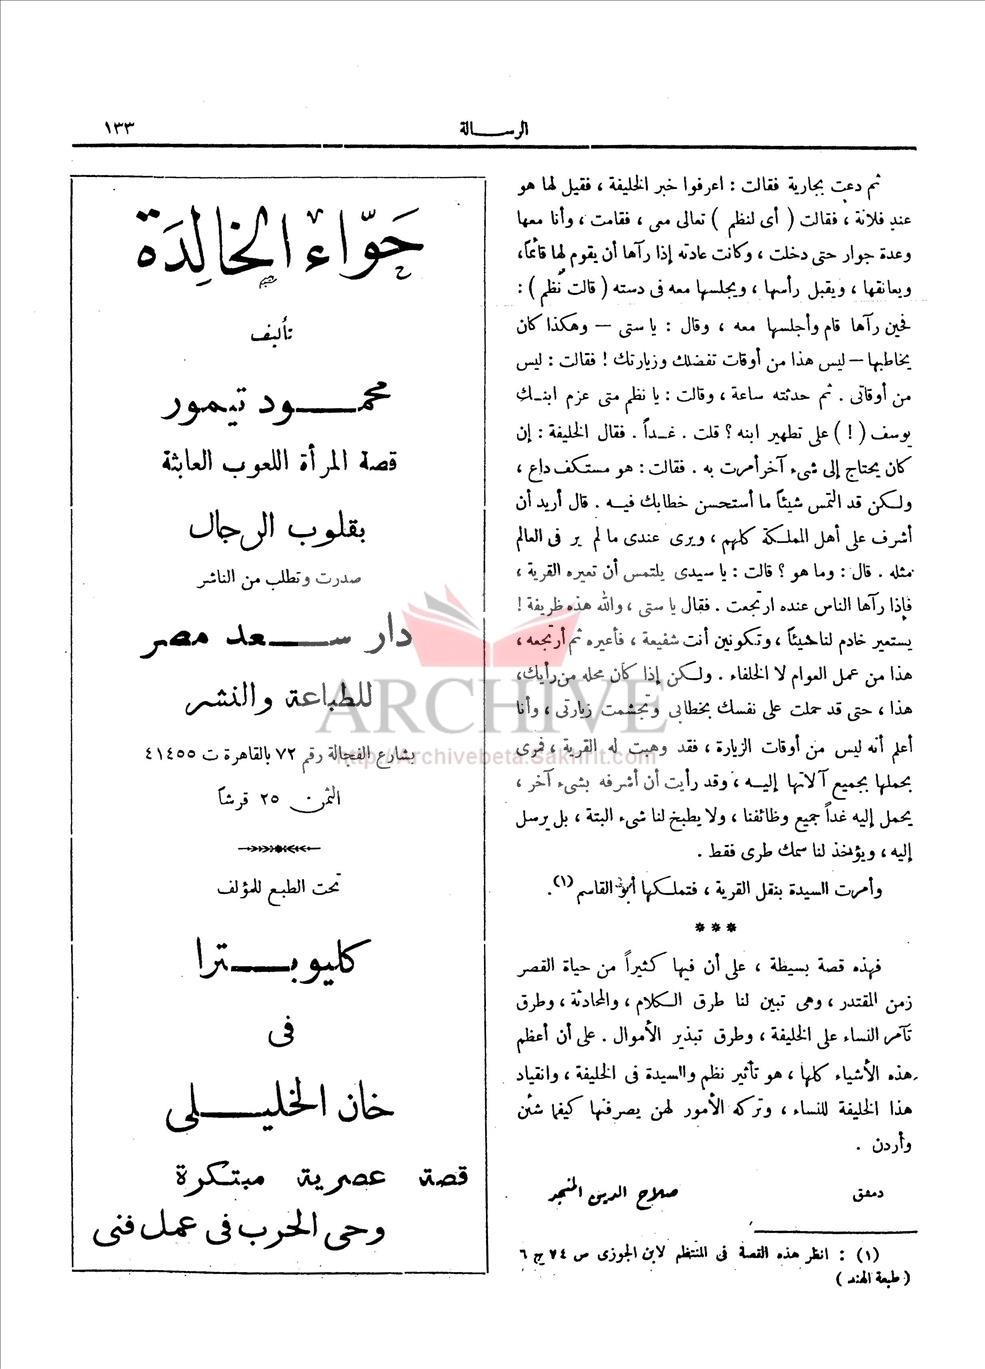 الرسالة
١٣٣
ثم دعت بجارية فقالت : اعرفوا خبر الخليفة ، فقيل لها هو
عند فلانة ، فقالت ( أى لنظم ) تعالى معى ، فقامت ، وأنا معها
وعدة جوار حتى دخلت ، وكانت عادته إذا رآها أن يقوم لها قائما،
ويعانقها ، ويقبل رأسها ، ويجلسها معه فى دسته ( قالت نُظم ) :
فحين رآها قام وأجلسها معه ، وقال : يا ستى — وهكذا كان
يخاطبها — ليس هذا من أوقات تفضلك وزيارتك ! فقالت : ليس
من أوقاتى . ثم حدثته ساعة ، وقالت : يا نظم متى عزم ابنك
يوسف ( ! ) على تطهير ابنه ؟ قلت . غداً . فقال الخليفة : إن
كان يحتاج إلى شىء آخر أمرت به . فقالت : هو مستكف داع ،
ولكن قد التمس شيئاً ما أستحسن خطابك فيه . قال أريد أن
أشرف على أهل المملكة كلهم ، ويرى عندى ما لم ير فى العالم
مثله . قال : وما هو ؟ قالت : يا سيدى يلتمس أن تعيره القرية ،
فإذا رآها الناس عنده ارتجعت . فقال يا ستى ، والله هذه ظريفة !
يستعير خادم لنا شيئاً ، وتكونين أنت شفيعة ، فأعيره ثم أرتجعه ،
هذا من عمل العوام لا الخلفاء . ولكن إذا كان محله من رأيك،
هذا ، حتى قد حملت على نفسك بخطابى وتجشمت زيارتى ، وأنا
أعلم أنه ليس من أوقات الزيارة ، فقد وهبت له القرية ، فمرى
بحملها بجميع آلاتها إليه ، وقد رأيت أن أشرفه بشىء آخر ،
يحمل إليه غداً جميع وظائفنا ، ولا يطبخ لنا شىء البتة ، بل يرسل
إليه ، ويؤخذ لنا سمك طرى فقط .
وأمرت السيدة بنقل القرية ، فتملكها أبو القاسم (١).
* * *
فهذه قصة بسيطة ، على أن فيها كثيراً من حياة القصر
زمن المقتدر ، وهى تبين لنا طرق الكلام ، والمحادثة ، وطرق
تآمر النساء على الخليفة ، وطرق تبذير الأموال . على أن أعظم
هذه الأشياء كلها ، هو تأثير نظم والسيدة فى الخليفة ، وانقياد
هذا الخليفة للنساء ، وتركه الأمور لهن يصرفنها كيفما شئن
وأردن .
دمشق صلاح الدين المنجد
(١) : انظر هذه القصة فى المنتظم لابن الجوزى ص ٧٤ ج ٦
( طبعة الهند )
حَوّاء الخالِدَة
تأليف
محمود تيمور
قصة المرأة اللعوب العابثة
بقلوب الرجال
صدرت وتطلب من الناشر
دار سعد مصر
للطباعة والنشر
بشارع الفجالة رقم ٧٢ بالقاهرة ت ٤١٤٥٥
الثمن ٢٥ قرشاً
تحت الطبع للمؤلف
كليوبترا
فى
خان الخليلى
قصة عصرية مبتكرة
وحى الحرب فى عمل فنى
ARCHIVE
http://Archivebeta.Sakhrit.com